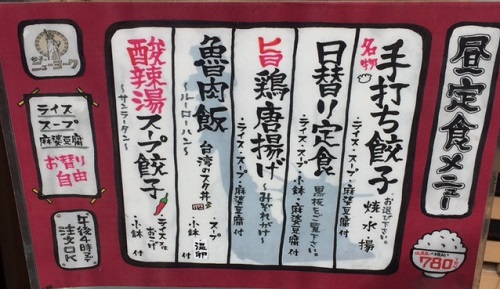 昼定食メニュー
780
名物
手打ち餃子
お選び下さい。
焼・水・揚
・ライス・スープ・麻婆豆腐付
日替り定食
黒板をご覧下さい。
・ライス・スープ・小鉢・麻婆豆腐付
旨鶏唐揚げ
・ライス・スープ・麻婆豆腐付
魯肉飯
〜ルーローハン〜
台湾のブタ丼
・スープ・小鉢・温卵付
酸辣湯スープ餃子
〜サンラータン〜
・ライス
・小鉢付
ニューヨーク
ライス
スープ
麻婆豆腐
お替り
自由
午後4時まで
注文OK